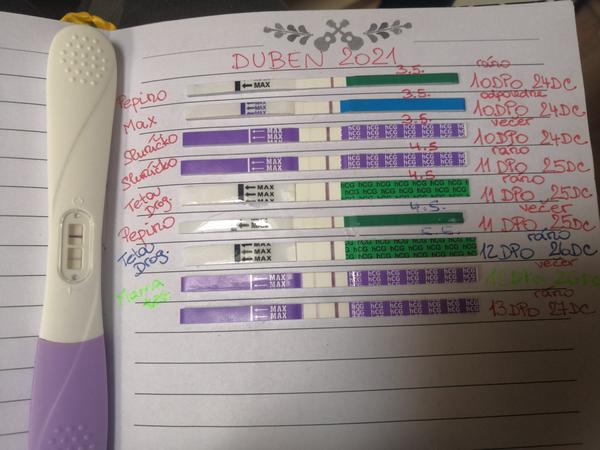 DUBEN 2021
ráno
Pepino MAX 3.5. 10DPO 24DC
odpoledne
Max MAX 3.5. 10DPO 24DC
večer
Sluníčko MAX MAX hCG hCG hCG hCG hCG hCG 3.5. 10DPO 24DC
ráno
Sluníčko MAX MAX hCG hCG hCG hCG hCG hCG 4.5 11DPO 25DC
ráno
Teta Drog. MAX hCG hCG hCG hCG hCG hCG 4.5 11DPO 25DC
večer
Pepino MAX 4.5. 11DPO 25DC
ráno
Teta Drog. MAX hCG hCG hCG hCG hCG hCG 5.5. 12DPO 26DC
večer
MAX MAX hCG hCG hCG hCG hCG hCG 12DPO 26DC
ráno
MAX MAX hCG hCG hCG hCG hCG hCG 13DPO 27DC